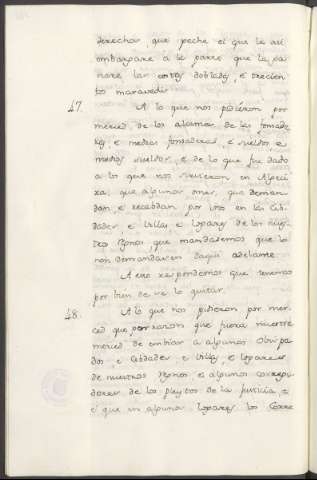 derechas, que peche el que le assi
embargare a la parte que la ga
nare las costas dobladas, e trecien
tos maravedis
47. A lo que nos pidieron por
merced, de los alcances de las fonsade
ras, e medias fonsaderas, e sueldos e
medios sueldos, e de lo que fue dado
a los que nos sirvieron en Algeci
ra, que algunos omes, que deman
dan, e recabdan por nos en las Cib
dades e Villas e Logares de los nues
tros Regnos, que mandasemos que lo
non demandasen daqui adelante.
A esto respondemos que tenemos
por bien de ge lo quitar.
48. A lo que nos pidieron por mer
ced que fuera nuestra
merced de embiar a algunos Obispa
dos, e Cibdades e Villas, e Logares
de nuestros Regnos e algunos corregi
dores de los pleytos de la justicia,
e que en algunos logares los Corre